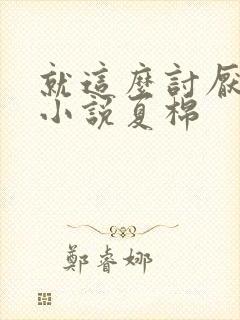 就這麼討厭
小說夏棉
鄭睿娜